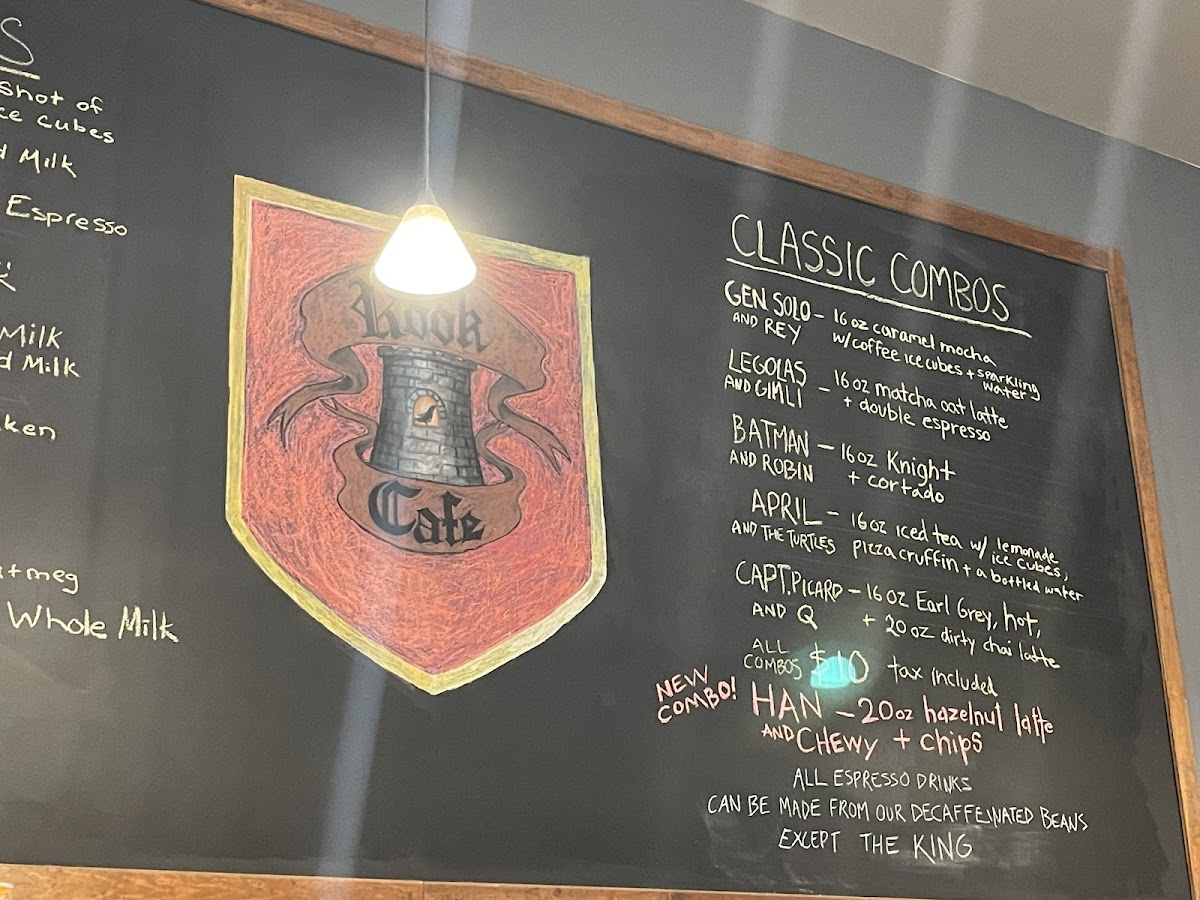 S
shot of
ce cubes
d Milk
Espresso
k
Milk
d Milk
ken
meg
Whole Milk
Rook
Cafe
CLASSIC COMBOS
GEN SOLO – 16 oz caramel mocha
AND REY w/coffee ice cubes + sparkling
water
LEGOLAS – 16 oz matcha oat latte
AND GIMLI + double espresso
BATMAN – 16oz Knight
AND ROBIN + cortado
APRIL – 16oz iced tea w/ lemonade
ice cubes,
AND THE TURTLES pizza cruffin + a bottled water
CAPT. PICARD – 16 oz Earl Grey, hot,
AND Q + 20 oz dirty chai latte
ALL
COMBOS $10 tax included
NEW
COMBO! HAN – 20oz hazelnut latte
AND CHEWY + chips
ALL ESPRESSO DRINKS
CAN BE MADE FROM OUR DECAFFEINATED BEANS
EXCEPT THE KING